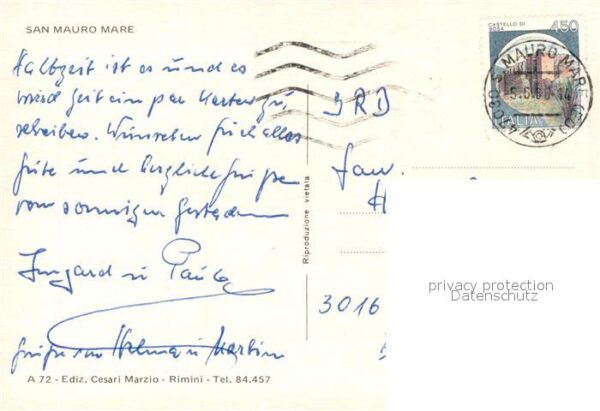 SAN MAURO MARE
Halbzeit ist es und es
wird Zeit ein par Karten zu
schreiben. Wünschen Euch alles
Gute und herzliche Grüße
vom sonnigen
Irmgard u Paula
Grüße von Helma u Martin
A 72 - Ediz. Cesari Marzio - Rimini - Tel. 84.457
Riproduzione vietata
CASTELLO DI
BOSA
450
ITALIA
S. MAURO MARE
47030
BRD
Fam.
3016
privacy protection
Datenschutz